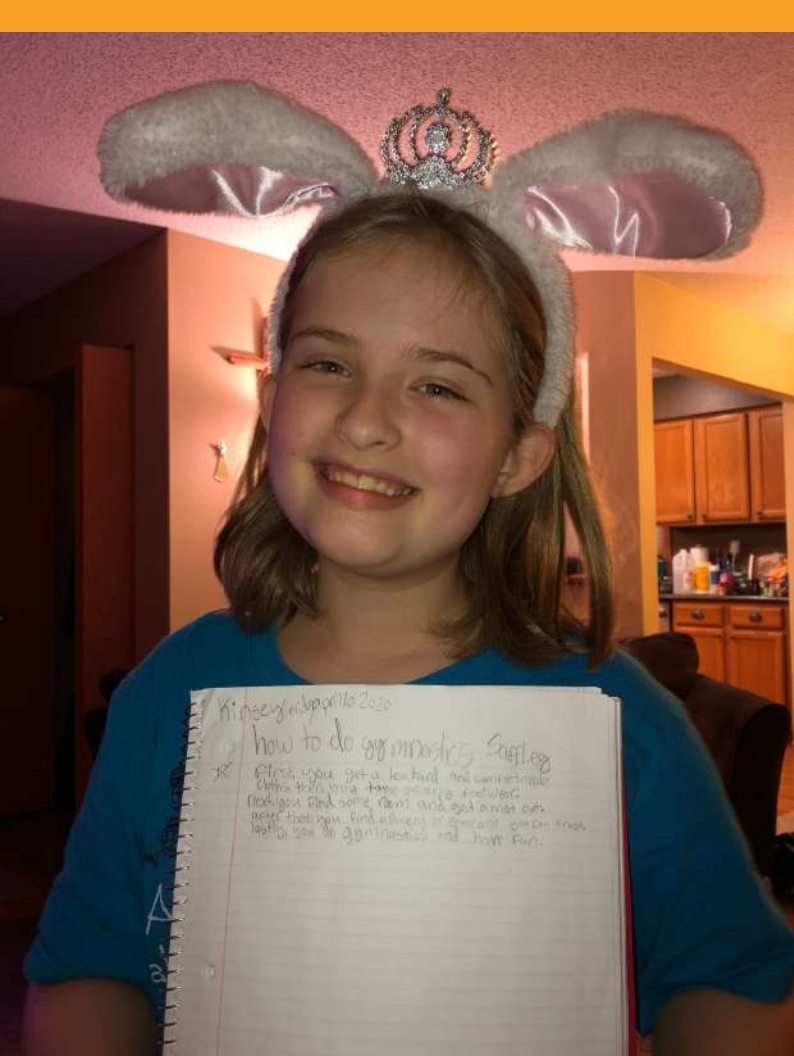 Kinsey fridyaprillo 2020
how to do gymnastics Saffley
First, you get a leotard and comfortable
then you take of any footwear.
Next, you find some room and get a mat out.
after that you find a parent or someone you can trust
lastly, you do gymnastics and have fun.